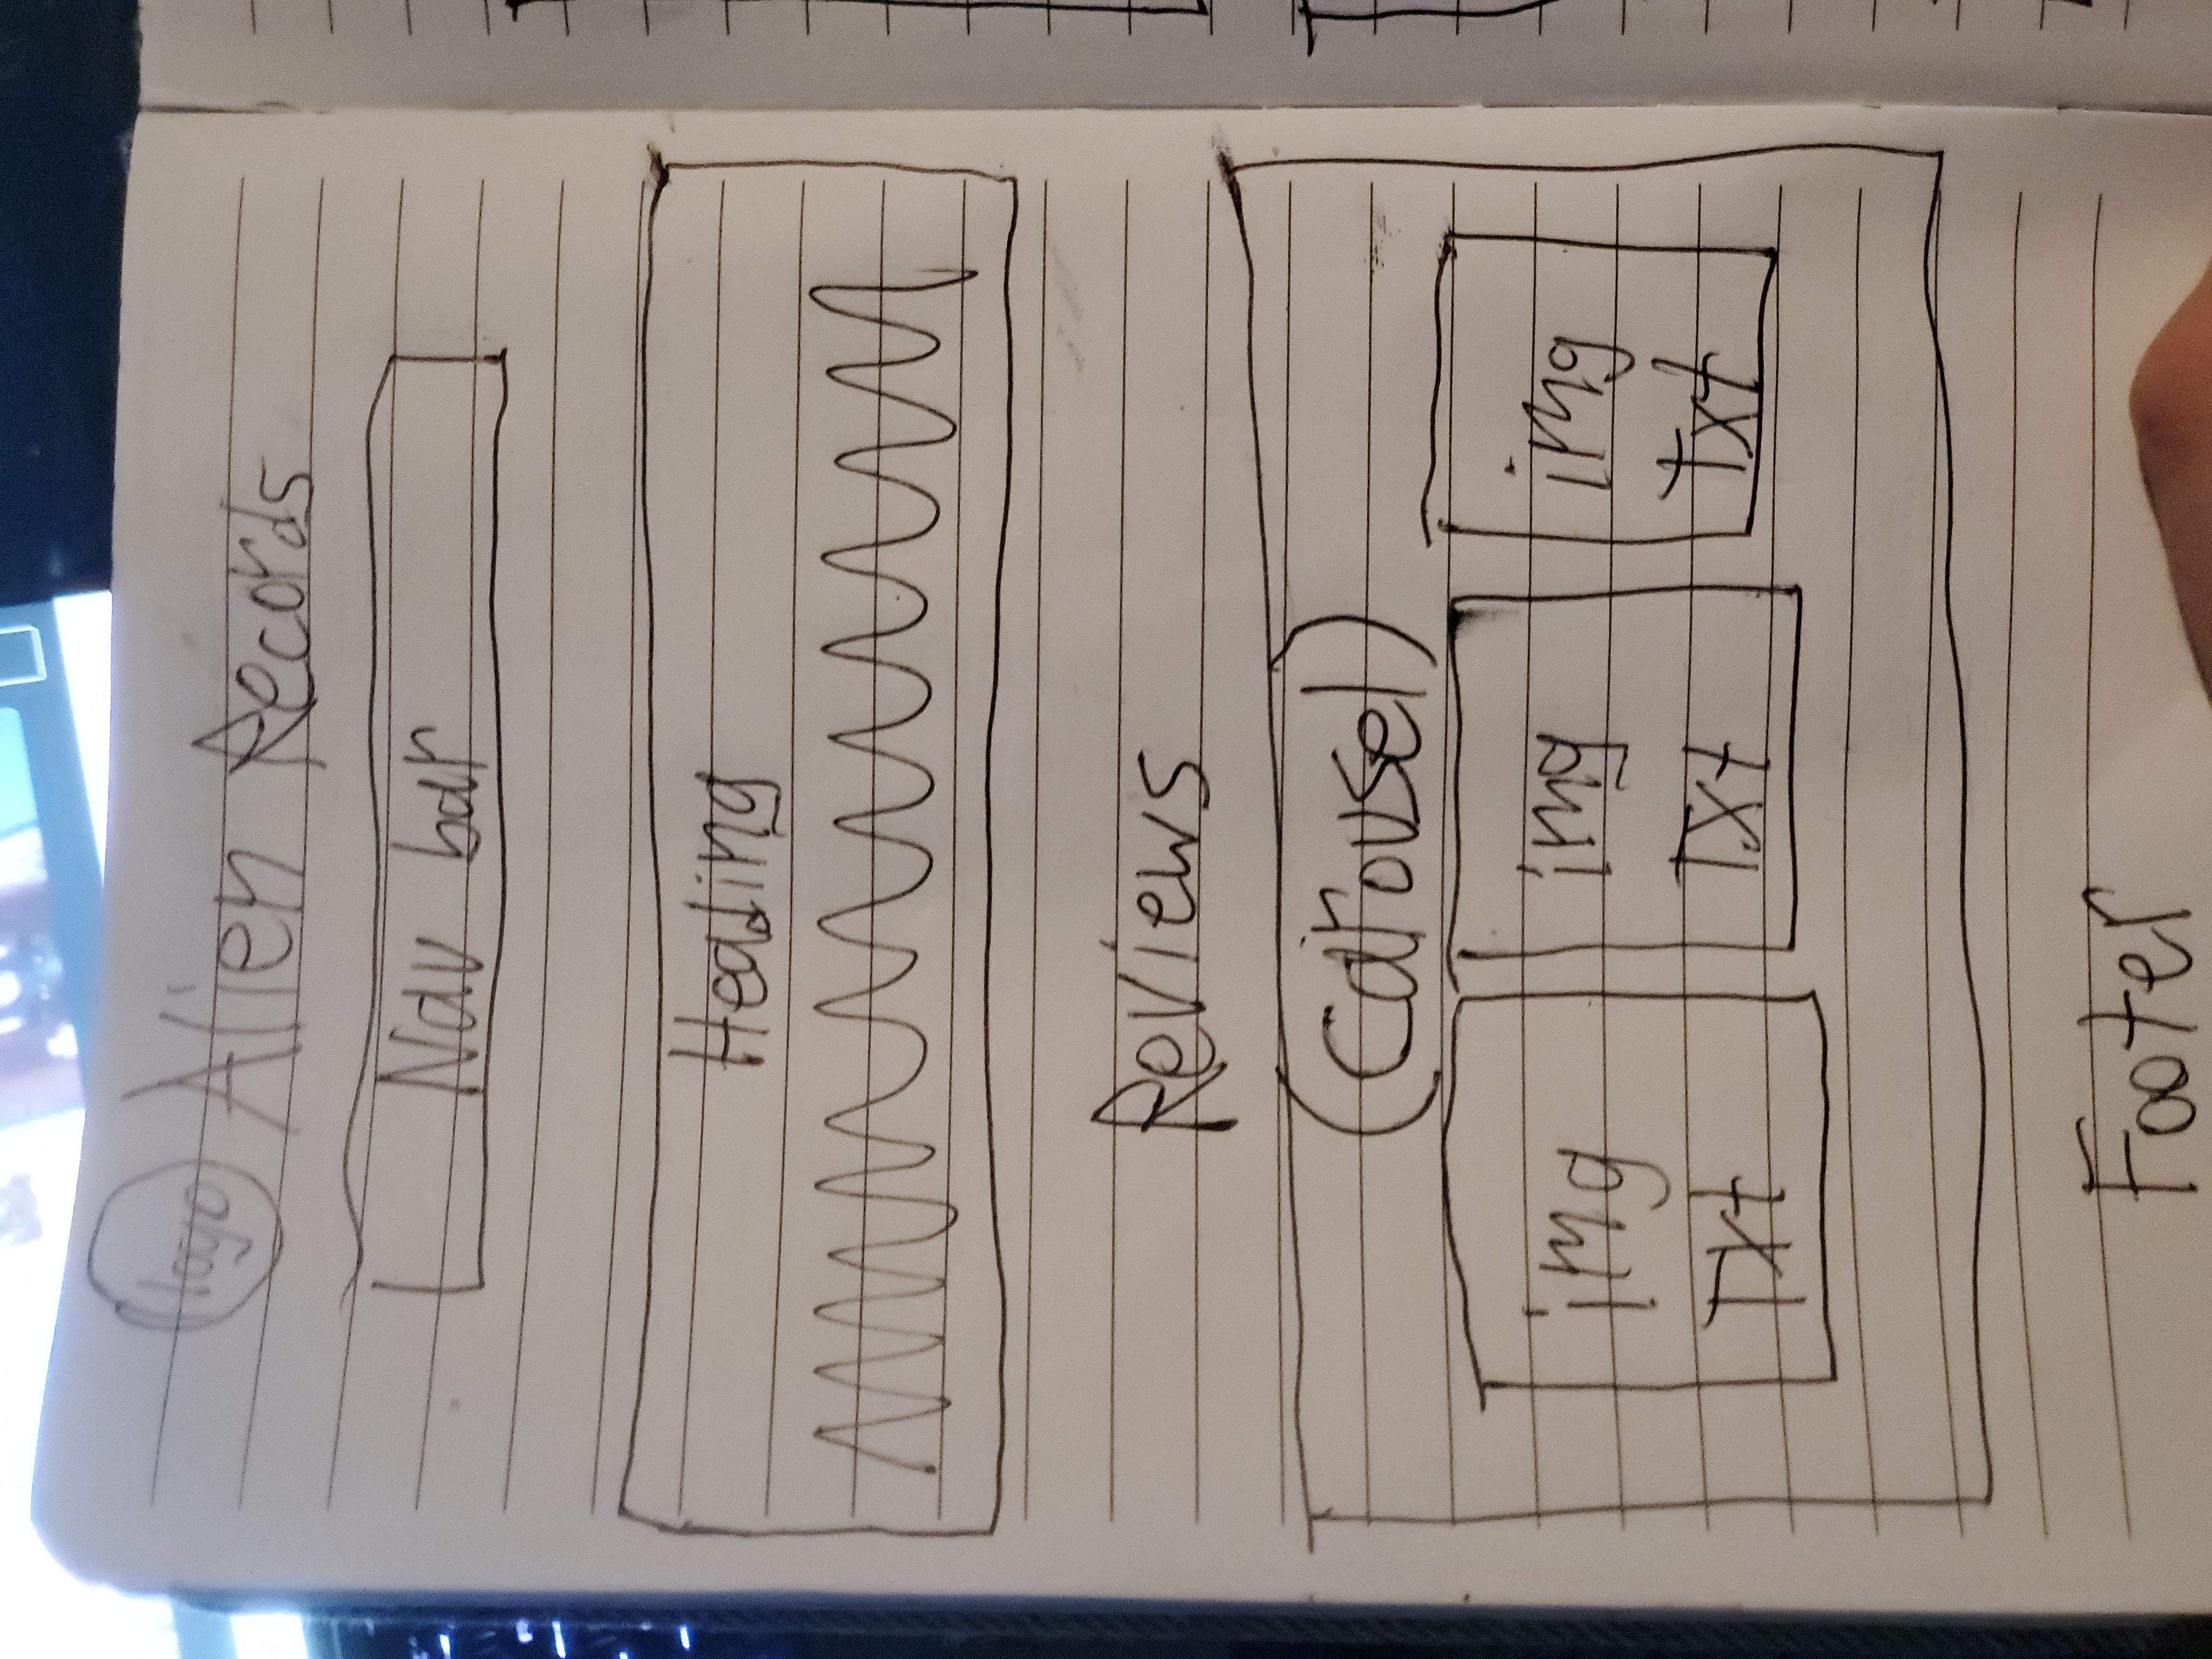 logo Alien Records
Nav bar
Heading
Reviews
(Carousel)
img img img
Txt Txt Txt
Footer